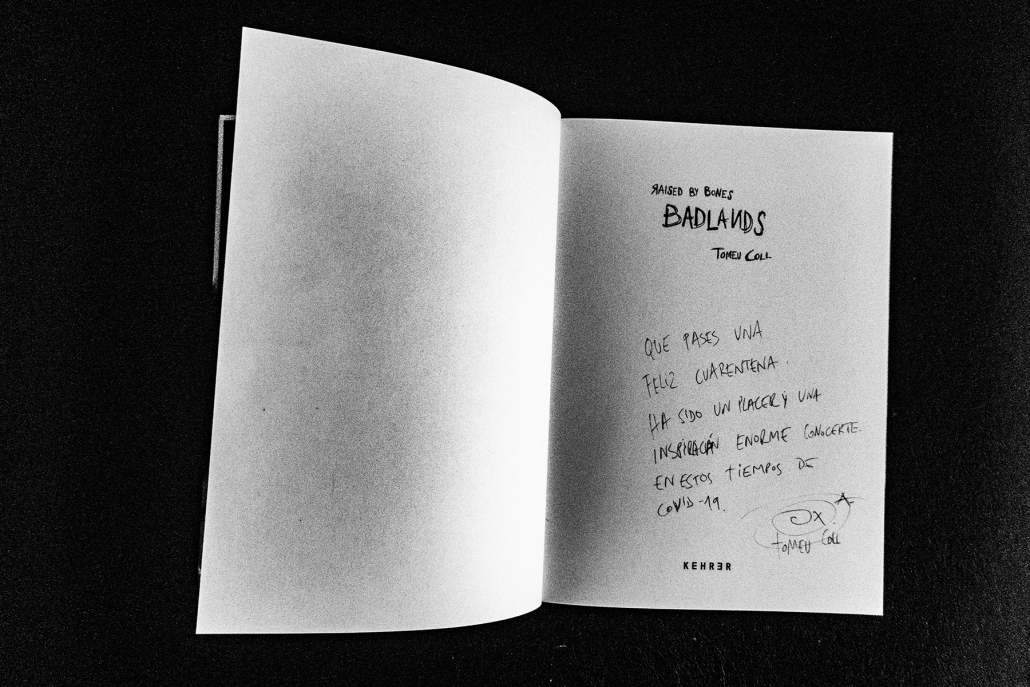 RAISED BY BONES
BADLANDS
TOMEU COLL
QUE PASES UNA
FELIZ CUARENTENA.
HA SIDO UN PLACER Y UNA
INSPIRACIÓN ENORME CONOCERTE.
EN ESTOS TIEMPOS DE
COVID-19.
TOMEU COLL
KEHRER